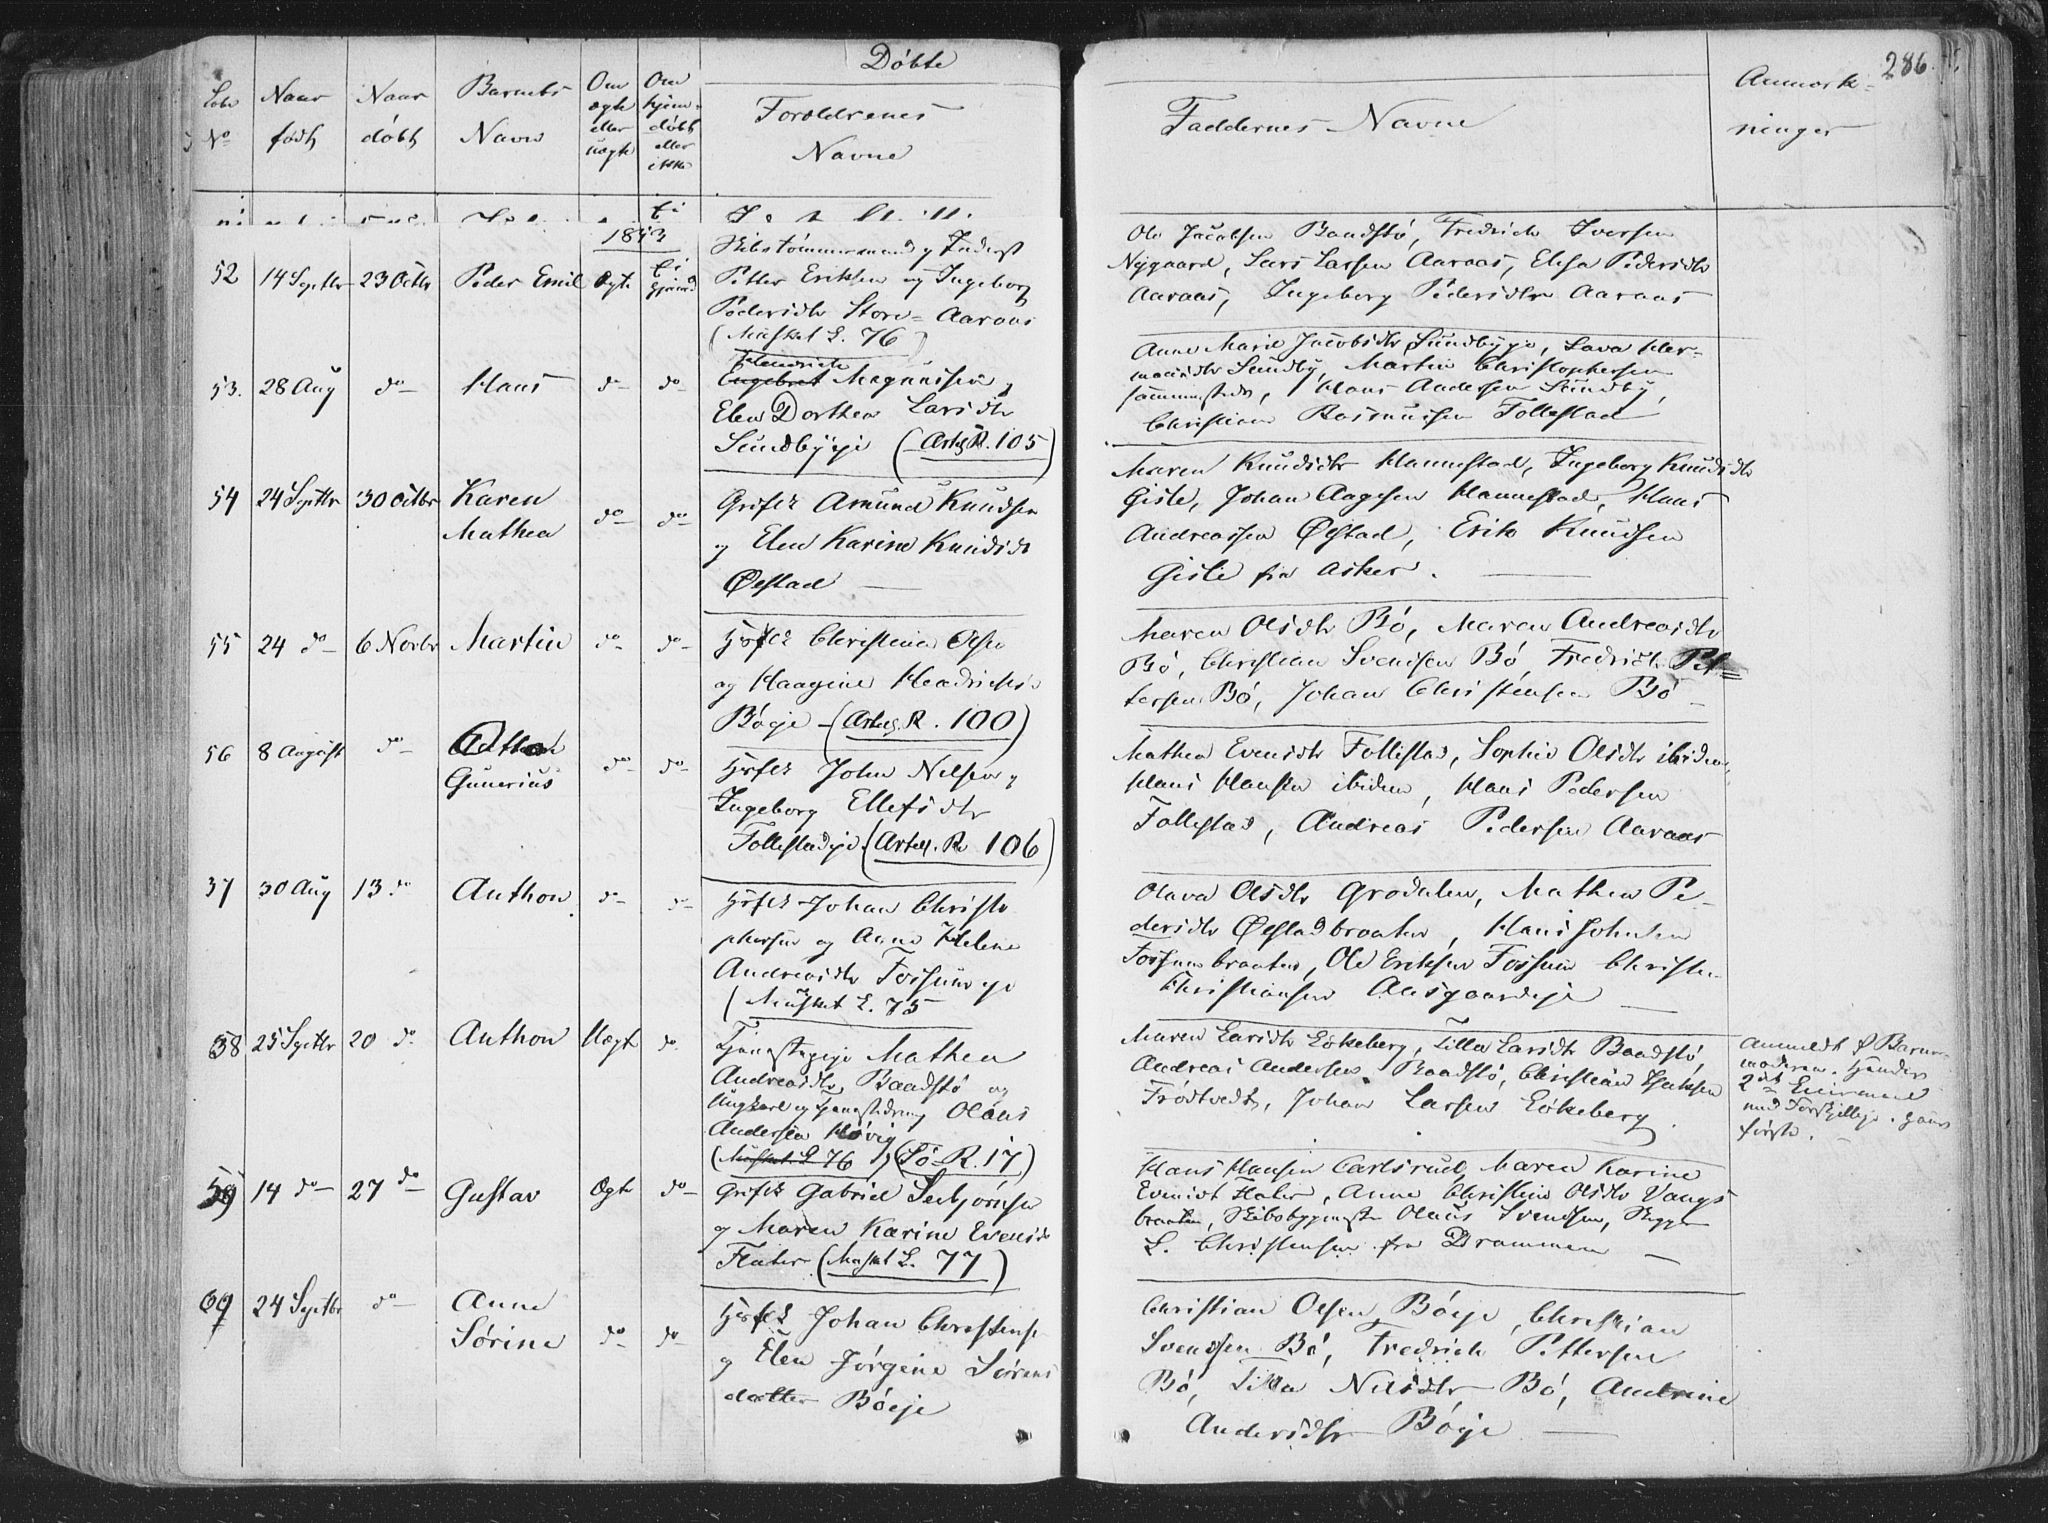 Døbte
286.
Løbe No
Naar født
Naar døbt
Barnets Navn
Om ægte eller uægte
Om hjemdøbt eller ikke
Forældrenes Navne
Faddernes Navne
Anmærkninger
1853
52 14 Septbr 23 Octbr Peder Emil Ægte
Skibstømmermand og Inderst
Petter Eriksen og Ingeborg
Pedersdtr Store-Aaraas
(Musket L. 76)
Ole Jacobsen Baadstø, Fredrich Iversen
Nygaard, Lars Larsen Aaraas, Elisa Pedersdtr
Aaraas, Ingeborg Pedersdtr Aaraas
53. 28 Aug do Hans do do
Hendrich
Engebret Magnussen og
Elen Dorthea Larsdtr
Sundbyeje (Arteg R. 105)
Anne Marie Jacobsdtr Sundbyeje, Lava Her-
mansdtr Sundby, Martin Christophersen
sammesteds, Hans Andersen Sundby,
Christian Rasmussen Follestad
54 24 Septbr 30 Octbr Karen
Mathea do do
Grdfk Amund Knudsen
og Elen Karine Knudsdtr
Øfstad
Maren Knudsdtr Hannestad, Ingeborg Knudsdtr
Gisle, Johan Aagesen Hannestad, Hans
Andreassen Øfstad, Erik Knudsen
Gisle fra Asker.
55 24 do 6 Novbr Martin do do
Husfk Christian Olsen
og Haagine Hendrichsd
Bøeje (Arteg. R. 100)
Maren Olsdtr Bø, Maren Andreasdtr
Bø, Christian Svendsen Bø, Fredrich Pet=
tersen Bø, Johan Christensen Bø
56 8 August do Anthon
Gunerius do do
Husfk John Nilsen og
Ingeborg Ellefsdtr
Follestadeje (Artell. R. 106)
Mathea Evensdtr Follestad, Sophie Olsdtr ibidem,
Hans Hansen ibidem, Hans Pedersen
Follestad, Andreas Pedersen Aaraas
37 30 Aug 13 do Anthon do do
Husfk Johan Christo-
phersen og Anne Helene
Andreasdtr Fossumeje
(Musket L. 75
Olava Olsdtr Grodalen, Mathea Pe-
dersdtr Øfstadbraaten, Hans Johnsen
Fossumbraaten, Ole Eriksen Fossum Christen
Christiansen Aasgaardeje
58 25 Septbr 20 do Anthon Uægte do
Tjenestepige Mathea
Andreasdtr Baadstø og
Ungkarl og Tjenestedreng Olaus
Andersen Høvig
(Musket L 76) (Sø-R. 17)
Maren Larsdtr Eökeberg, Tilla Larsdtr Baadstø
Andreas Andersen Baadstø, Christian Isaksen
Frödtvedt, Johan Larsen Eökeberg
Anmeldt af Barne-
moderen. Hendes
2det Leiermaal
med Forskjellige. Hans
første.
59 14 do 27 do Gustav Ægte do
Grdfk Gabriel Seebjørnsen
og Maren Karine Evensdtr
Flater (Musket L. 77)
Hans Hansen Carlsrud, Maren Karine
Evensdt Flater, Anne Christine Olsdtr Vangs
braaten, Skibsbyggmester Olaus Svendsen, Skipper
L. Christensen fra Drammen
60 24 Septbr do Anne
Sørine do do
Husfk Johan Christensen
og Elen Jørgine Sørens
datter Bøeje
Christian Olsen Bøeje, Christian
Svendsen Bø, Fredrich Pettersen
Bø, Tilla Nilsdtr Bø, Andrine
Andersdtr Bøeje